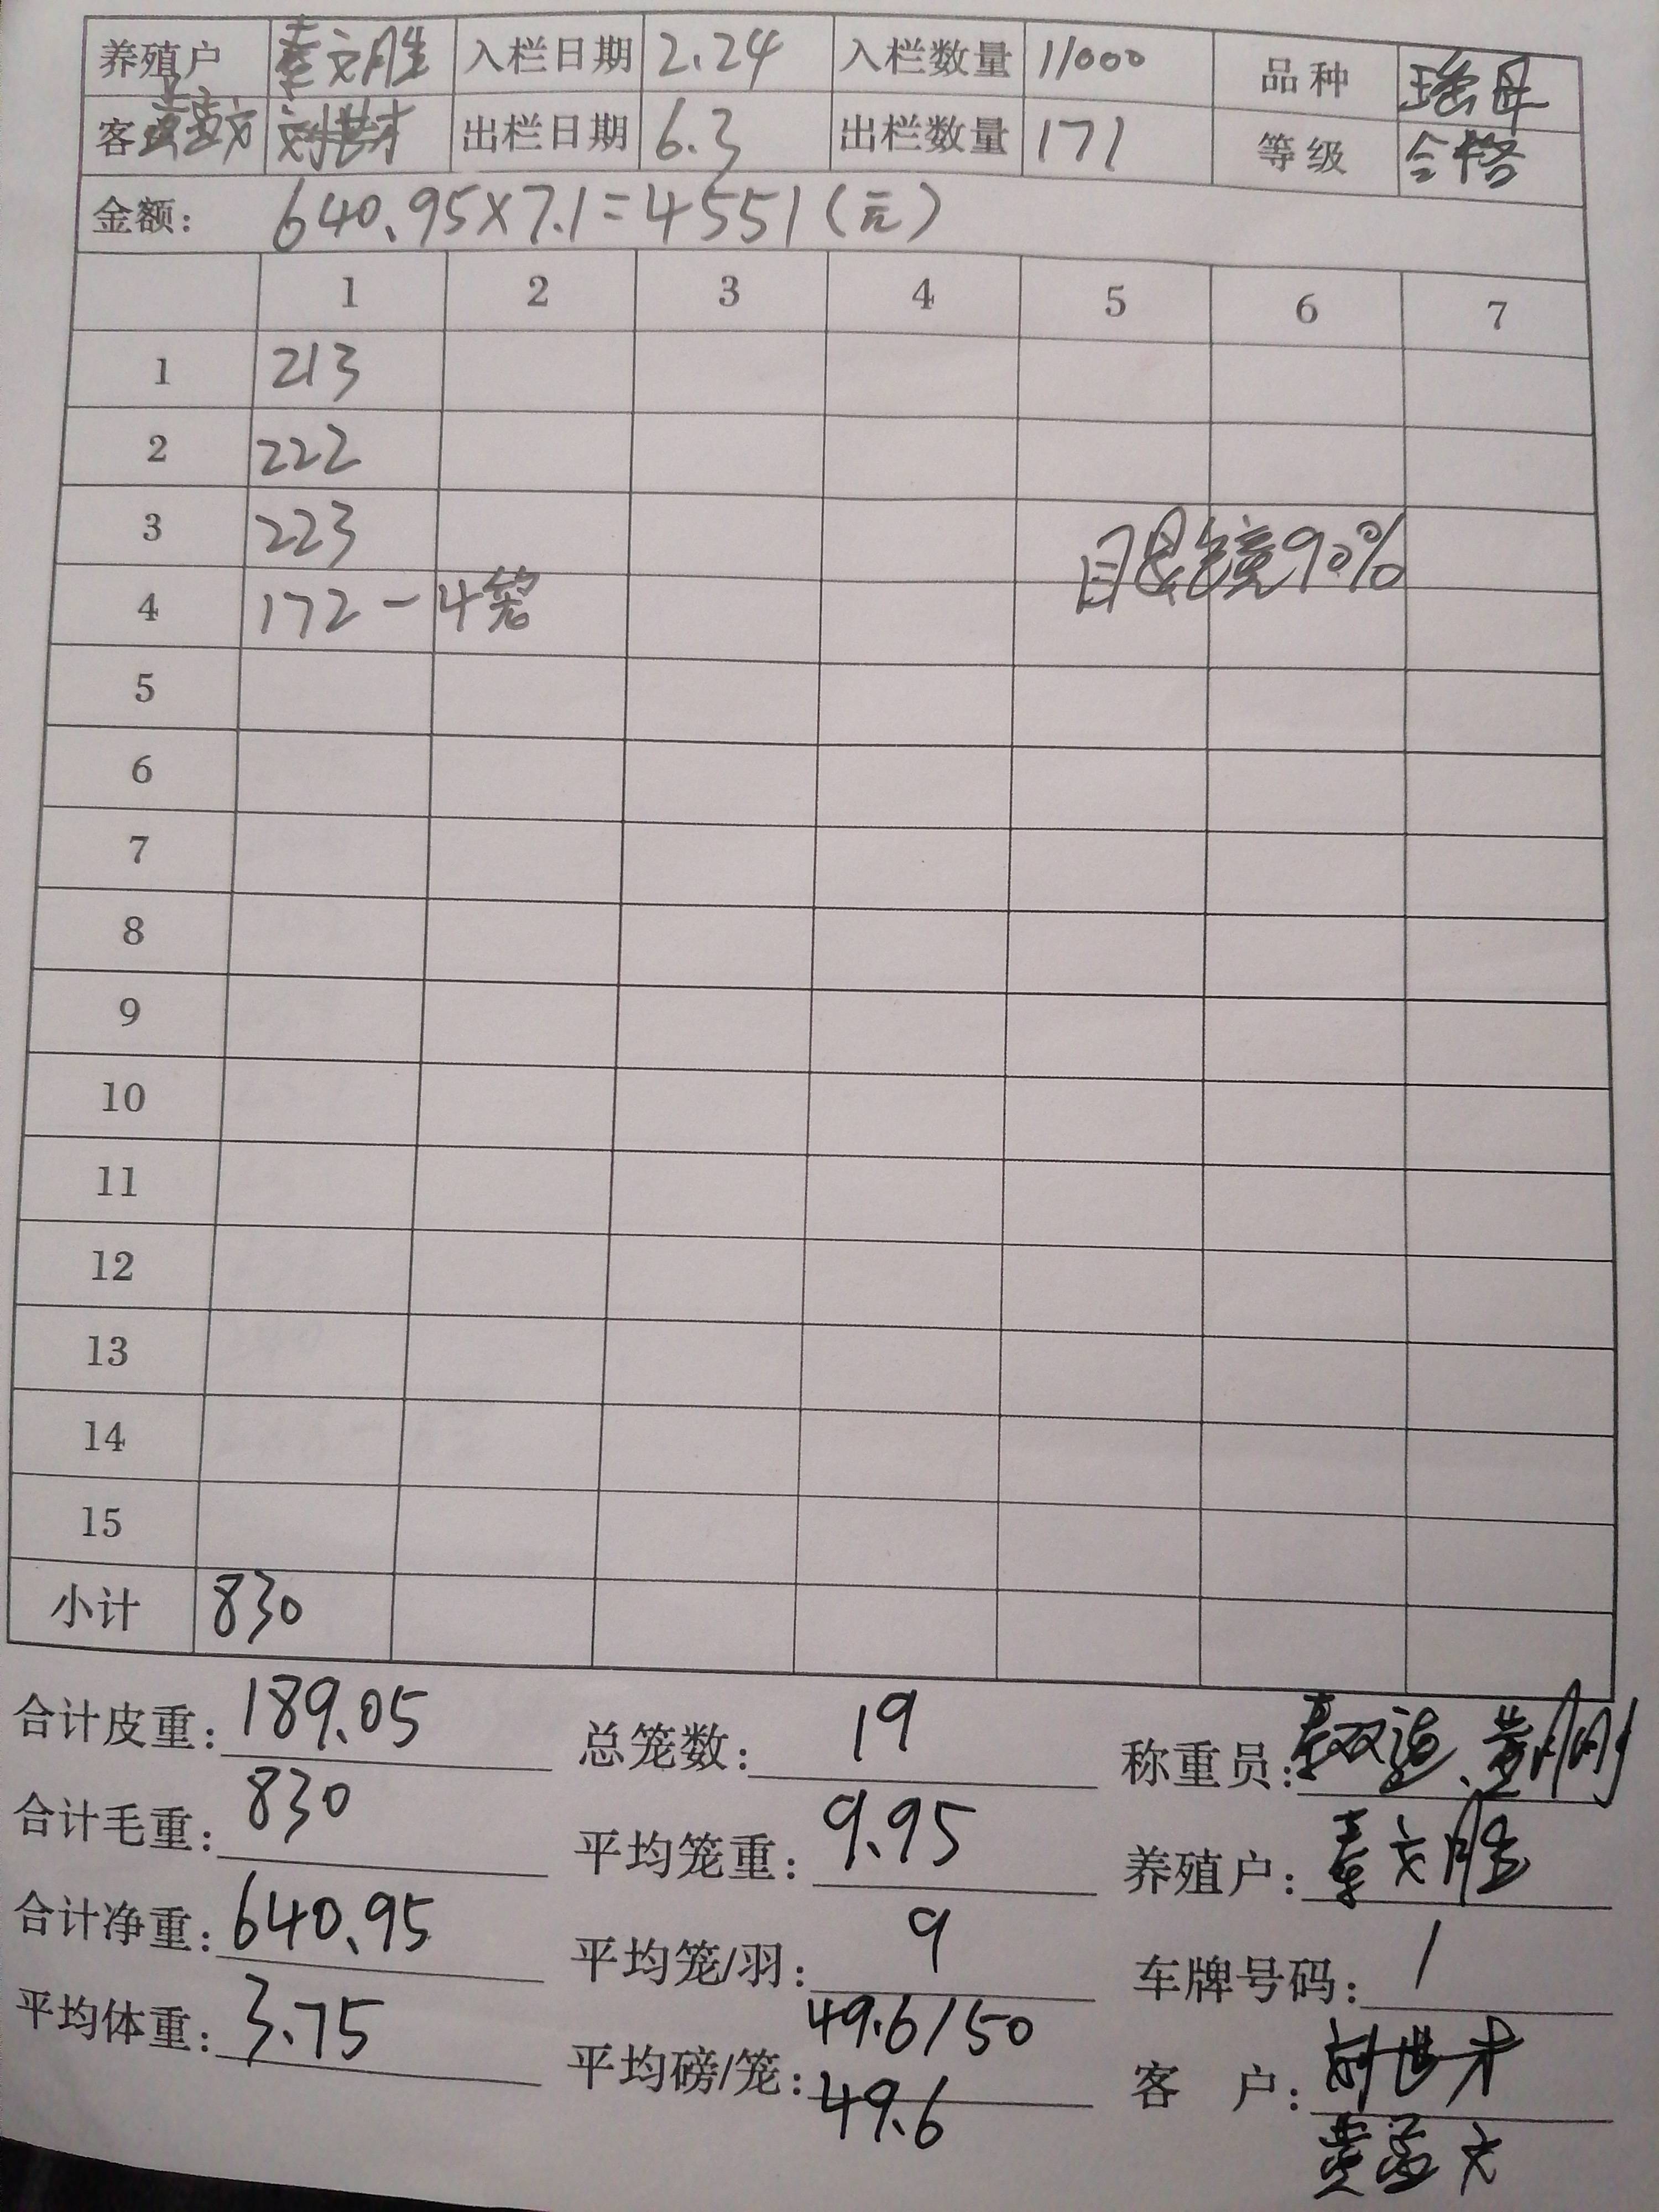 养殖户 秦文胜 入栏日期 2.24 入栏数量 11000 品种 瑶母
客 刘世才 出栏日期 6.3 出栏数量 171 等级 合格
金额: 640.95×7.1=4551(元)
1 2 3 4 5 6 7
1 213
2 222
3 223
眼镜90%
4 172-4笼
5
6
7
8
9
10
11
12
13
14
15
小计 830
合计皮重: 189.05 总笼数: 19 称重员:
合计毛重: 830 平均笼重: 9.95 养殖户: 秦文胜
合计净重: 640.95 平均笼/羽: 9 车牌号码: /
平均体重: 3.75 平均磅/笼: 49.6/50 客 户: 刘世才
49.6